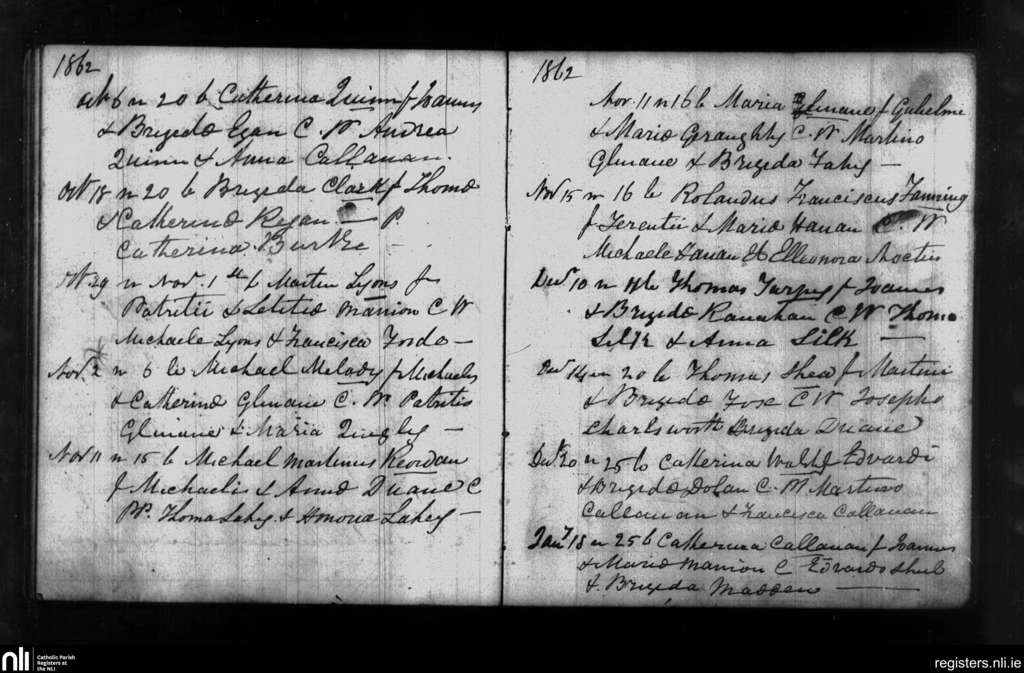 1862
Octr 6 n 20 b Catherina Quinn f Joannis
& Brigedæ Egan C. W Andrea
Quinn & Anna Callanan.
Oct 18 n 20 b Brigeda Clark f Thomæ
& Catherinæ Ryan — P.
Catherina Burke
Oct 29 n Novr. 1st b Martin Lyons f
Patritii & Letitiæ Mannion C W
Michaele Lyons & Francisca Forde —
Novr. 2 n 6 b Michael Melody f Michaelis
& Catherinæ Glinane C. W Patritio
Glinane & Maria Quigley —
Novr 11 n 15 b Michael Martinus Reordan
f Michaelis & Annæ Duane C
W. Thoma Lahey & Honoria Lahey —
1862
Nov. 11 n 16 b Maria Glinane f Gulielmi
& Mariæ Geraughty C. W Martino
Glinane & Brigeda Fahey —
Nov 15 n 16 b Rolandus Franciscus Fanning
f Terentii & Mariæ Hanan C. W
Michaele Hanan & Elleonora
Decr 10 n 11 b Thomas Turpey f Joannis
& Brigedæ Ranahan C W Thoma
Silk & Anna Silk —
Decr 14 n 20 b Thomas Shea f Martini
& Brigedæ Fox C W Josepho
Charlsworth Brigeda Duane
Decr 20 n 25 b Catherina Walsh Edvardi
& Brigedæ Dolan C. W Martino
Callanan & Francisca Callanan
Jany 18 n 25 b Catherina Callanan f Joannis
& Mariæ Mannion C Edvardo
& Brigeda Madden —
nli
Catholic Parish
Registers at
the NLI
registers.nli.ie